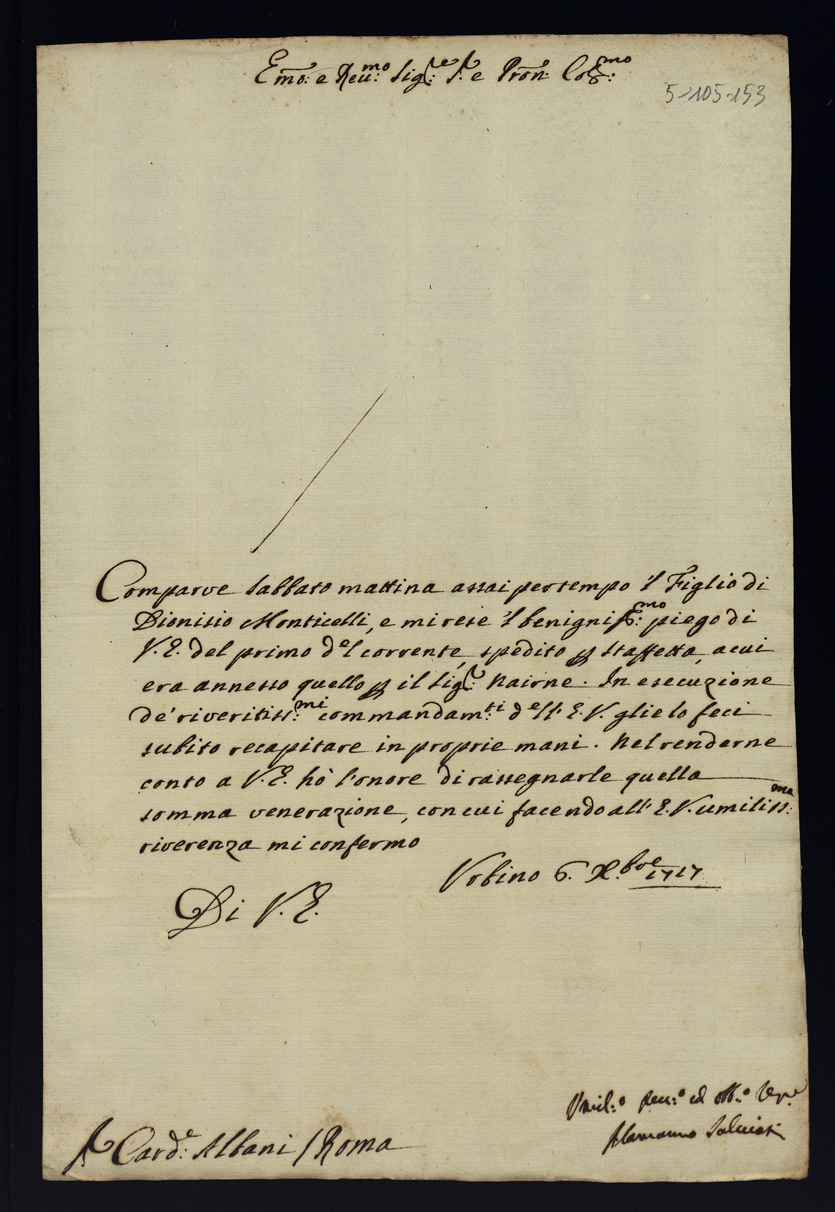 Emo: e Reu:mo Sig:re S.r e Pron: Col:mo
5-105-153
Comparve Sabbato mattina assai pertempo il Figlio di
Dionisio Monticelli, e mi rese il beniguiss:mo piego di
V. E. del primo del corrente, spedito per staffetta, a cui
era annesso quello per il Sig.r Nairne. In esecuzione
de' riveritiss:mi commandam:ti dell' E. V. glielo feci
subito recapitare in proprie mani. Nel renderne
conto a V. E. hò l'onore di rassegnarle quella
somma venerazione, con cui facendo all' E. V. umiliss:ma
riverenza mi confermo
Urbino 6. Xbre 1717
Di V. E.
Vmil:o Deu:o ed Obb:o Ser.e
Alamanno Salviati
Sr Card:e Albani / Roma